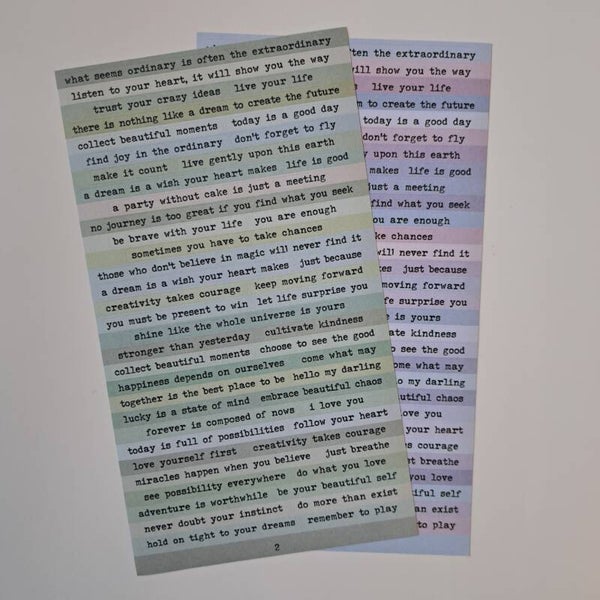 what seems ordinary is often the extraordinary
listen to your heart, it will show you the way
trust your crazy ideas live your life
there is nothing like a dream to create the future
collect beautiful moments today is a good day
find joy in the ordinary don't forget to fly
make it count live gently upon this earth
a dream is a wish your heart makes life is good
a party without cake is just a meeting
no journey is too great if you find what you seek
be brave with your life you are enough
sometimes you have to take chances
those who don't believe in magic will never find it
a dream is a wish your heart makes just because
creativity takes courage keep moving forward
you must be present to win let life surprise you
shine like the whole universe is yours
stronger than yesterday cultivate kindness
collect beautiful moments choose to see the good
happiness depends on ourselves come what may
together is the best place to be hello my darling
lucky is a state of mind embrace beautiful chaos
forever is composed of nows i love you
today is full of possibilities follow your heart
love yourself first creativity takes courage
miracles happen when you believe just breathe
see possibility everywhere do what you love
adventure is worthwhile be your beautiful self
never doubt your instinct do more than exist
hold on tight to your dreams remember to play
2
ten the extraordinary
will show you the way
live your life
to create the future
today is a good day
don't forget to fly
upon this earth
makes life is good
just a meeting
find what you seek
you are enough
ke chances
will never find it
kes just because
moving forward
fe surprise you
is yours
ate kindness
see the good
ome what may
my darling
utiful chaos
ove you
your heart
s courage
st breathe
you love
iful self
an exist
to play